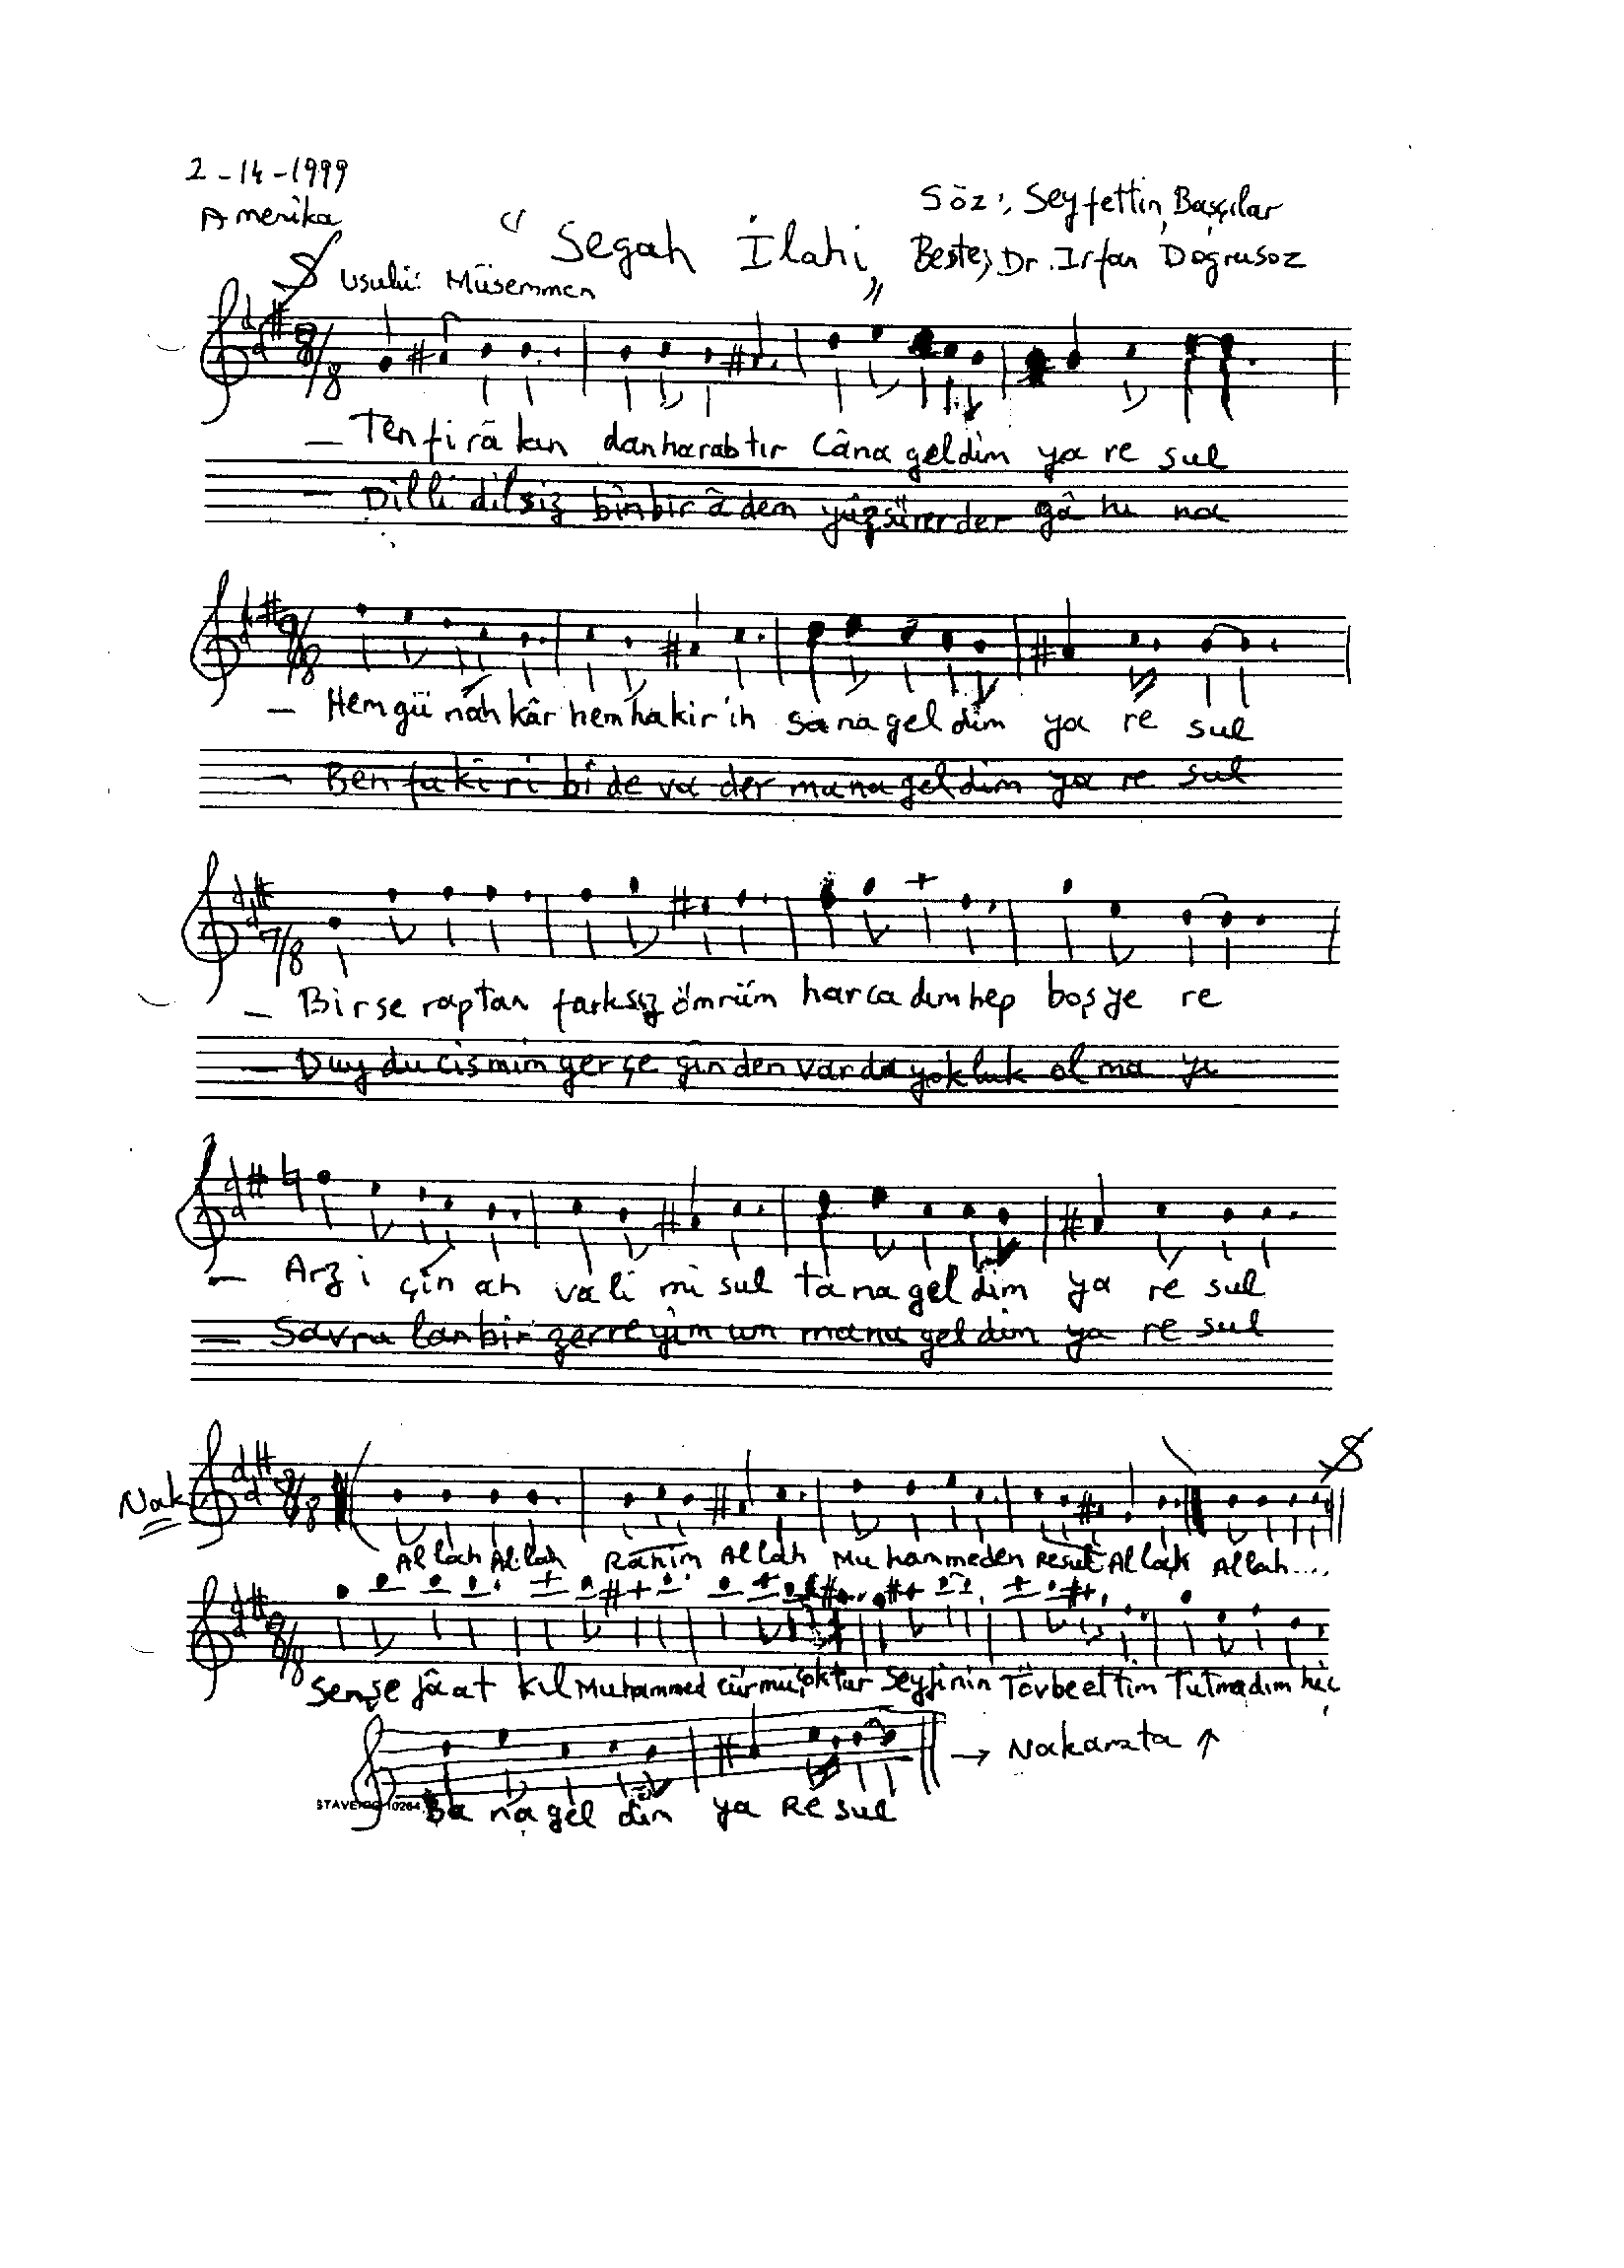 2-14-1999
Amerika
Söz: Seyfettin Başçılar
"Segah İlahi"
Beste; Dr. Irfan Doğrusoz
Usulü: Müsemmen
8/8
– Ten firâkın dan harabtır Câna geldim ya re sul
– Dilli dilsiz binbir âdem yüz sürer der gâ hı na
9/8
– Hem gü nah kâr hem hakir'in sana gel dim ya re sul
– Ben fa ki ri bi de va der mana gel dim ya re sul
7/8
– Bir se raptan farksız ömrüm harca dım hep boş ye re
– Duy du cismim ger çe ğin den var da yok luk ol ma yı
– Arz i çin ah va li mi sul ta na gel dim ya re sul
– Savru lan bir zerre yim um mana gel dim ya re sul
Nak
9/8
Al lah Al lah Rahim Allah Mu hammeden Resul Allah Allah....
9/8
Sen şe fâat kıl Muhammed cürmü çoktur Seyfinin Tövbe ettim Tutmadım hiç
→ Nakarata ↑
STAVE 10264
Ba na gel dim ya Re sul